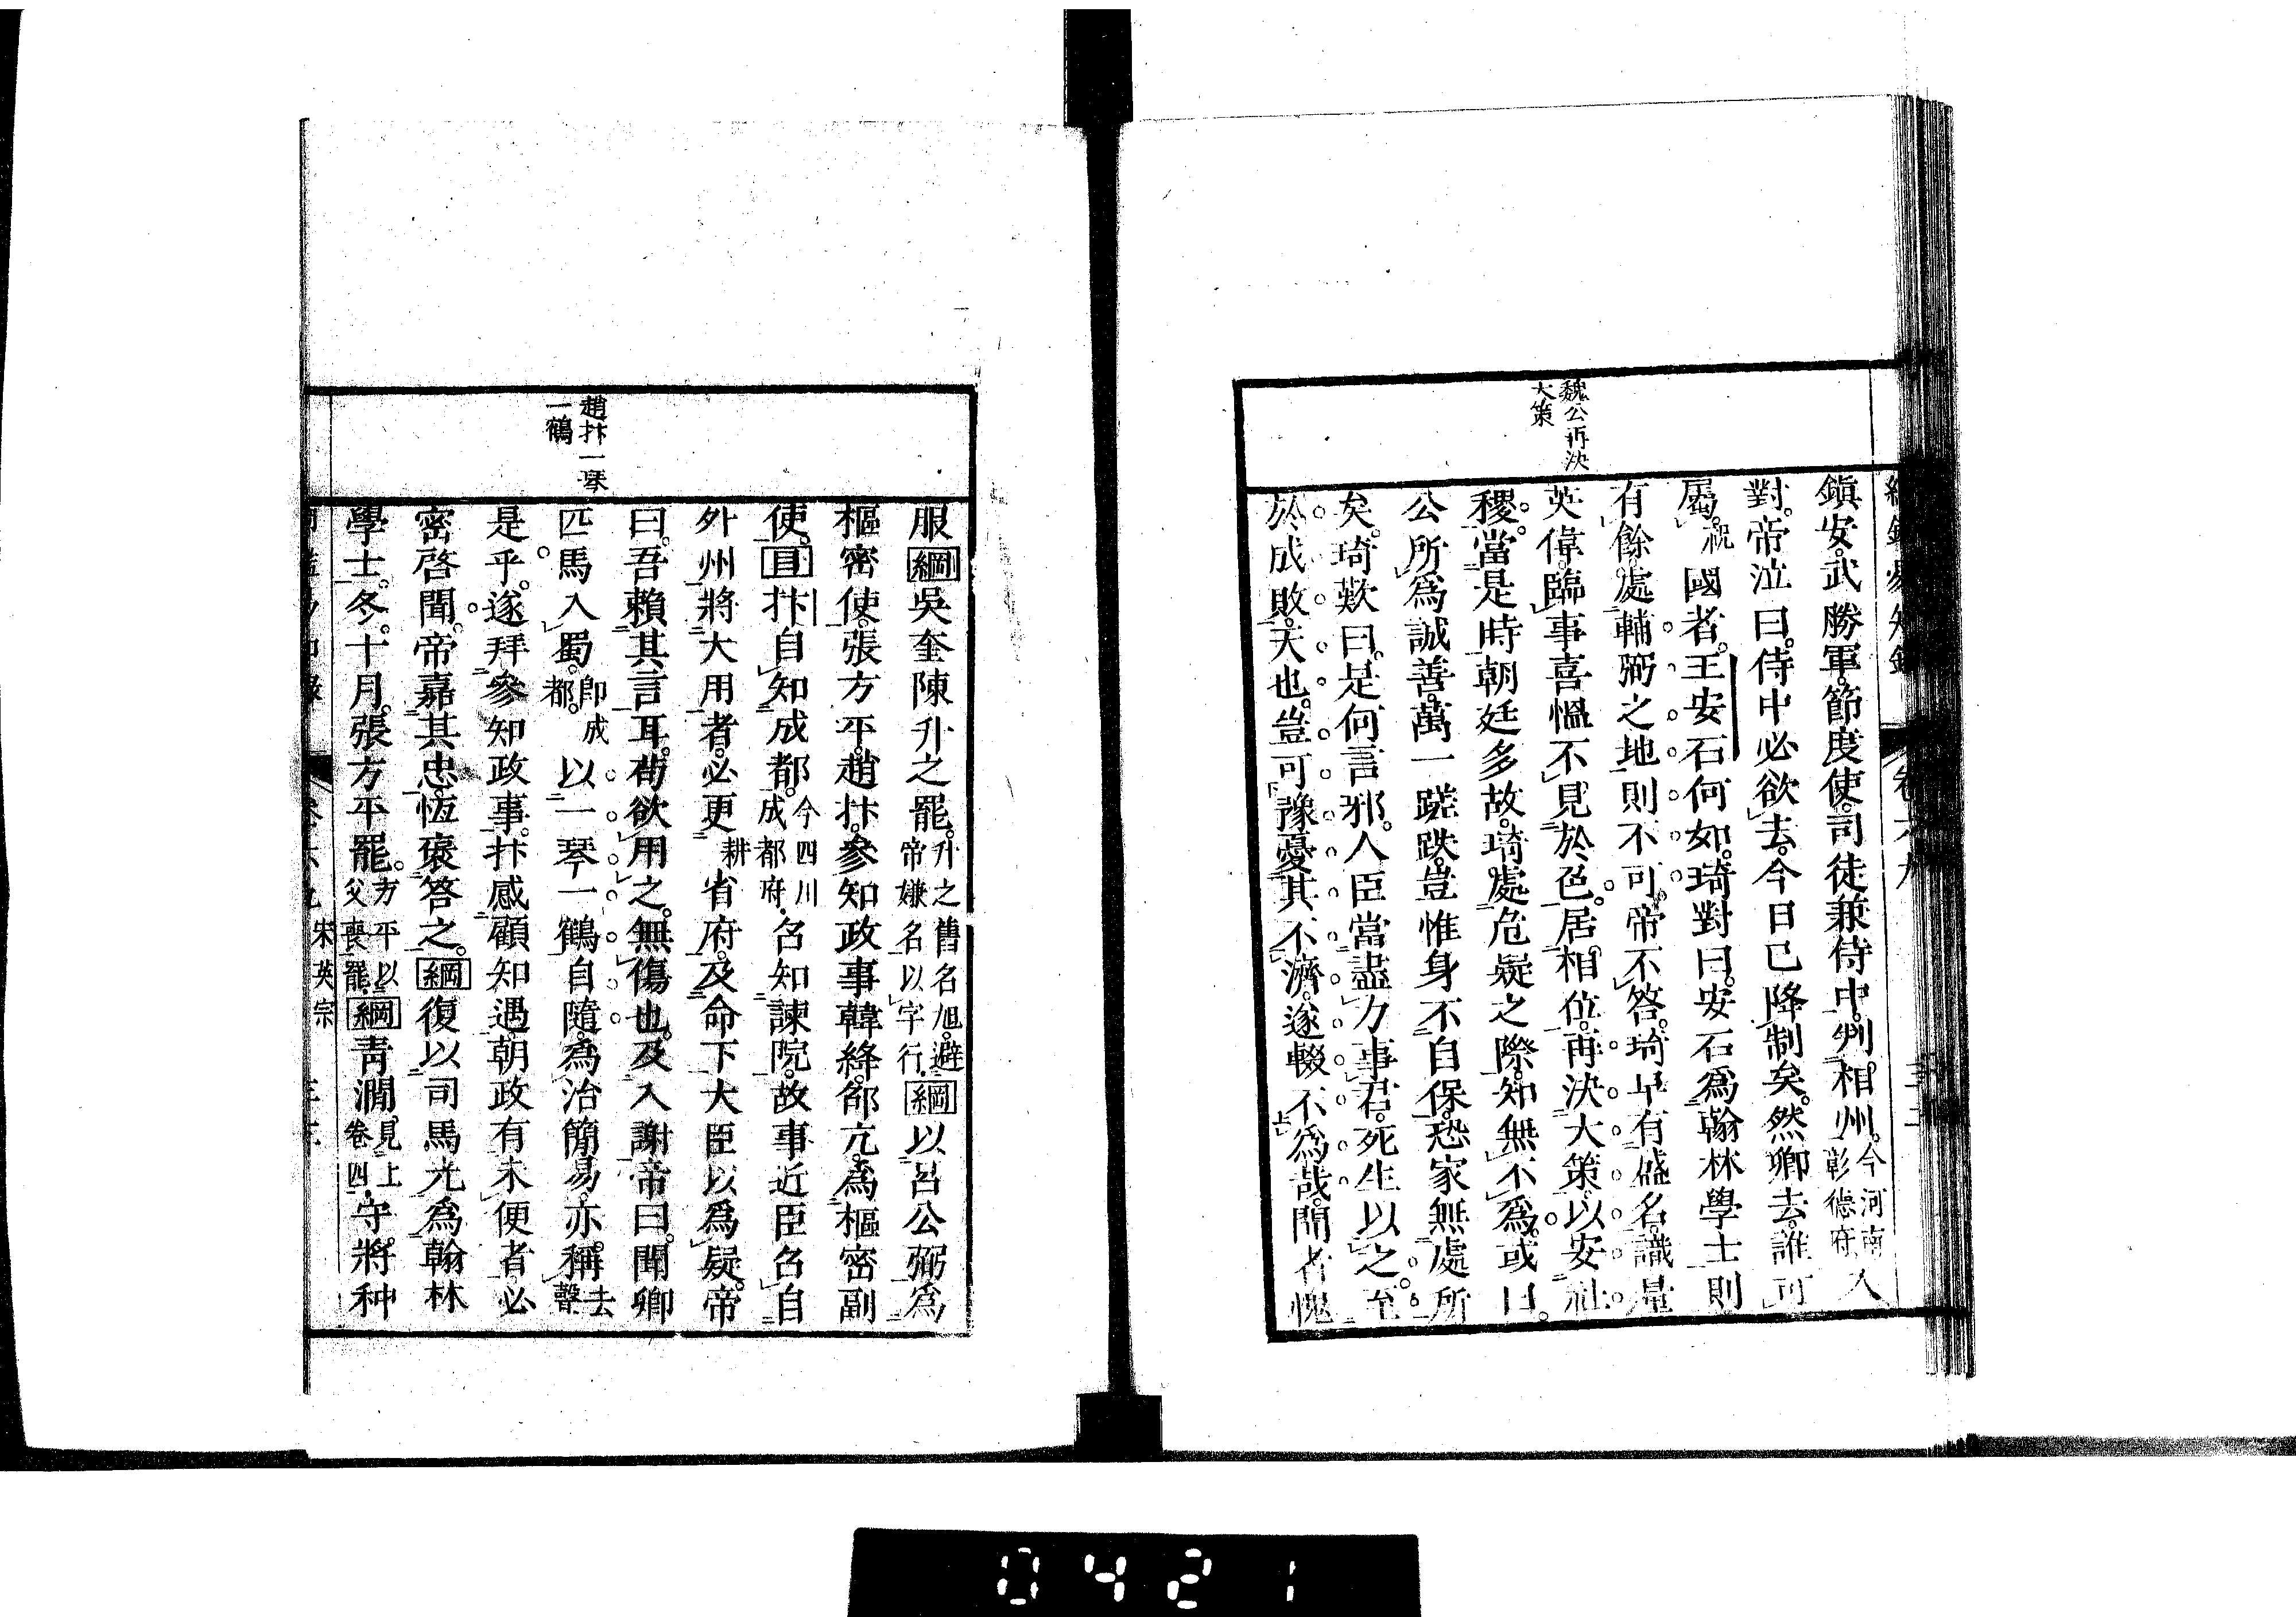 鎭安。武勝軍。節度使。司徒兼侍中。判相州。今河南彰德府。入
對。帝泣曰。侍中必欲去。今日已降制矣。然卿去。誰可
屬。祝國者。王安石何如。琦對曰。安石爲翰林學士則
有餘。處輔弼之地則不可。帝不答。琦早有盛名。識量
英偉。臨事喜慍不見於色。居相位。再決大策。以安社
稷。當是時朝廷多故。琦處危疑之際。知無不爲。或曰。
公所爲誠善。萬一蹉跌。豈惟身不自保。恐家無處所
矣。琦歎曰。是何言邪。人臣當盡力事君。死生以之。至
於成敗。天也。豈可豫憂其不濟。遂輟不爲哉。聞者愧
魏公再決
大策
服綱吳奎陳升之罷。升之舊名旭。避帝嫌名以字行。綱以呂公弼爲
樞密使。張方平。趙抃。參知政事韓絳。邵亢。爲樞密副
使。目抃自知成都。今四川成都府。召知諫院。故事近臣召自
外州將大用者。必更耕省府。及命下大臣以爲疑。帝
曰。吾賴其言耳。苟欲用之。無傷也。及入謝帝曰。聞卿
匹馬入蜀。卽成都。以一琴一鶴自隨。爲治簡易。亦稱去聲
是乎。遂拜參知政事。抃感顧知遇。朝政有未便者必
密啓聞。帝嘉其忠。恆褒答之。綱復以司馬光爲翰林
學士。冬。十月。張方平罷。方平以父喪罷。綱靑澗。見上卷四。守將种
趙抃一琴
一鶴
宋英宗
0421